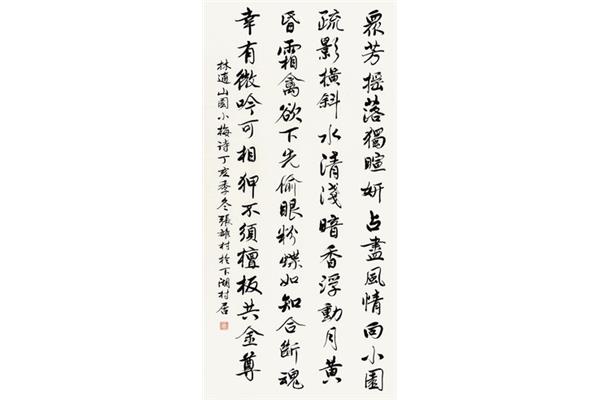 眾芳摇落獨暄妍占盡風情向小園
疏影橫斜水清淺暗香浮動月黄
昏霜禽欲下先偷眼粉蝶如知合斷魂
幸有微吟可相狎不須檀板共金尊
林逋山园小梅诗丁亥季冬張村於下湖村居